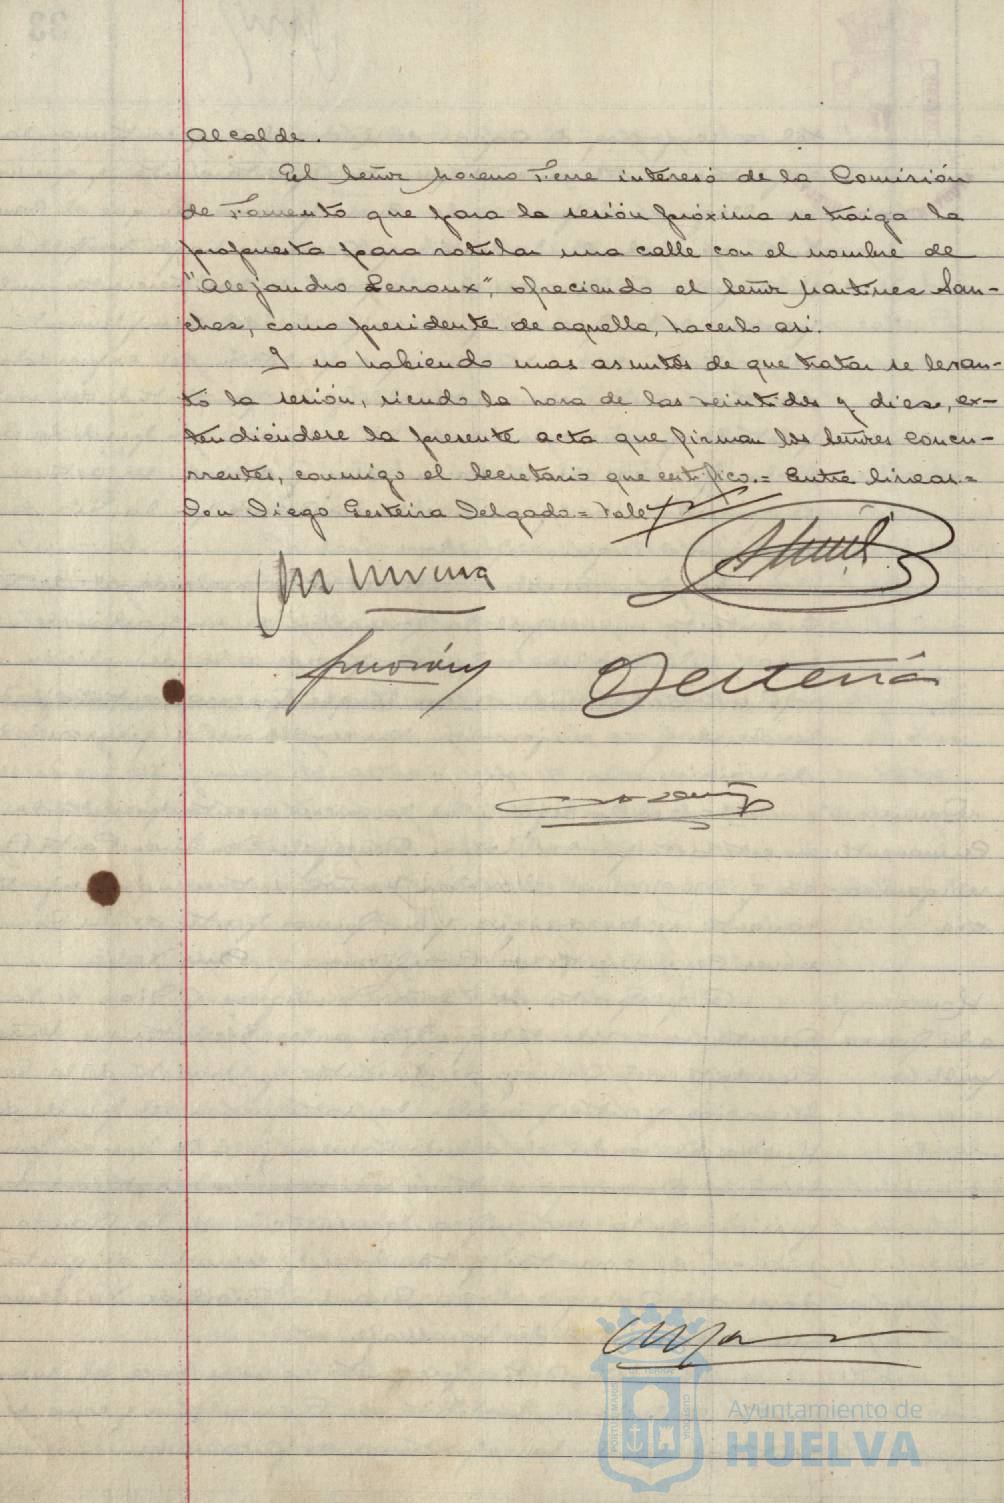 Alcalde.
El señor Moreno Fiene interesó de la Comisión
de Fomento que para la sesión próxima se traiga la
propuesta para rotular una calle con el nombre de
"Alejandro Lerroux", ofreciendo el señor Martinez San-
chez, como presidente de aquella, hacerlo asi.
Y no habiendo mas asuntos de que tratar se levan-
tó la sesión, siendo la hora de las veintidos y diez, ex-
tendiéndose la presente acta que firman los señores concu-
rrentes, conmigo el Secretario que certifico.= Entre lineas.=
Don Diego Gesteira Delgado = Vale
Gesteira
Ayuntamiento de
HUELVA